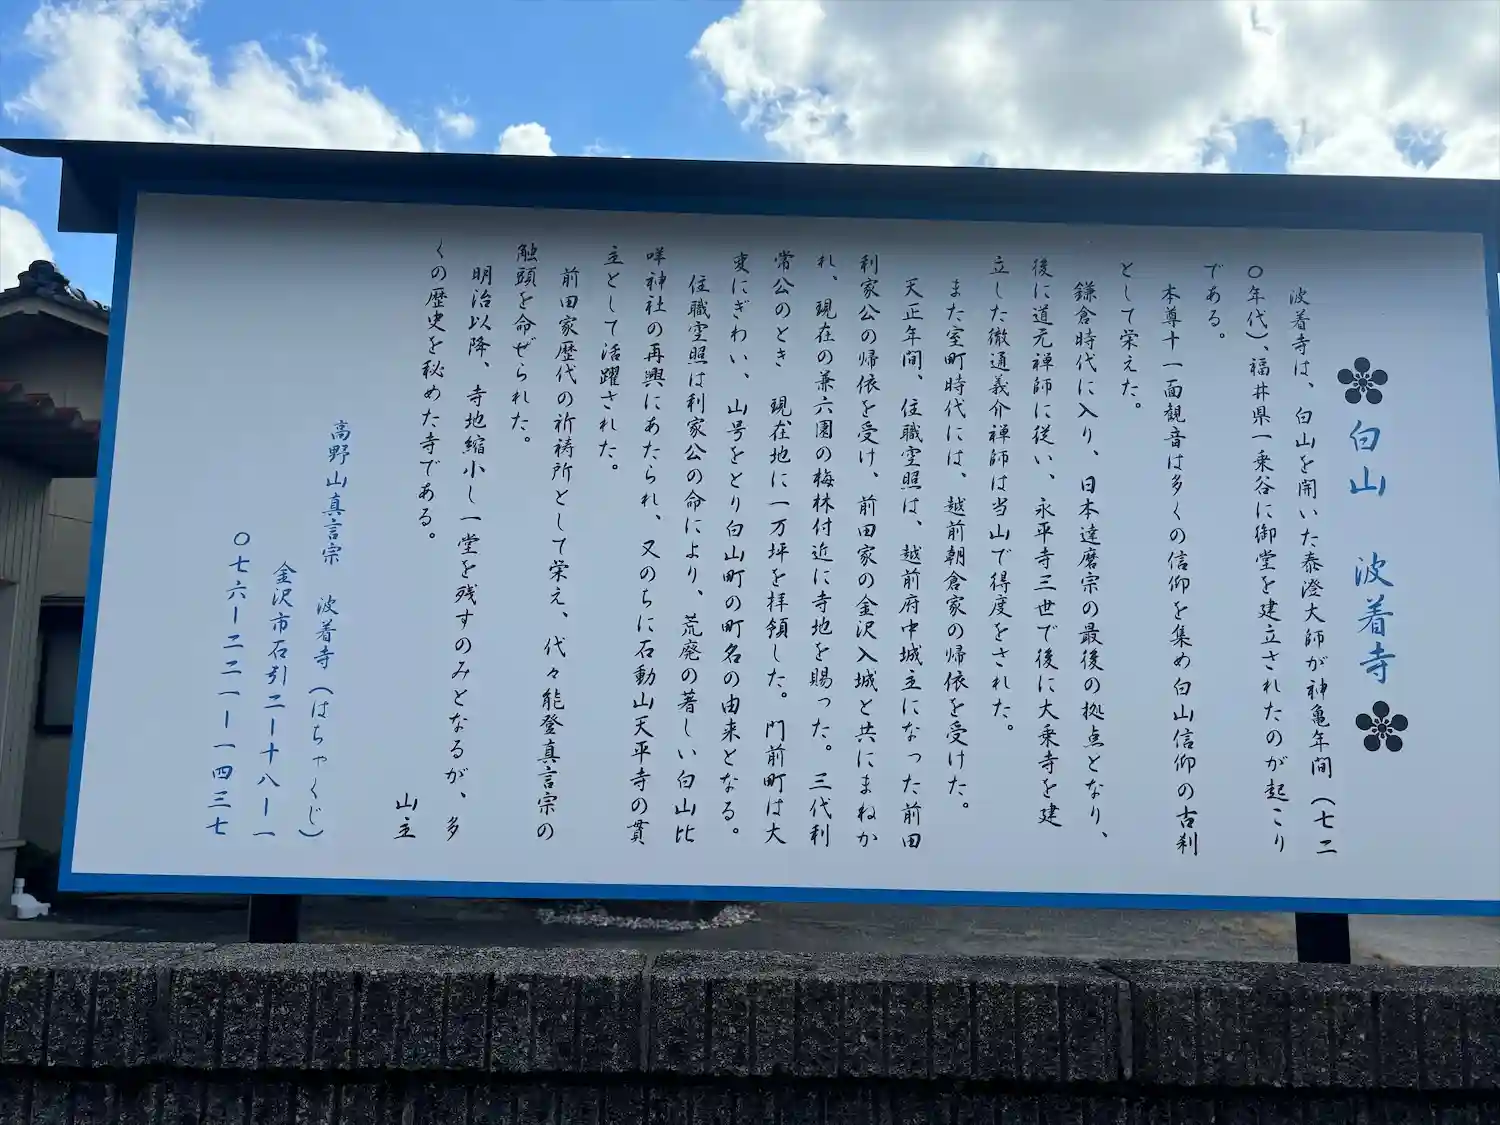 白山 波着寺
波着寺は、白山を開いた泰澄大師が神亀年間(七二
〇年代)、福井県一乗谷に御堂を建立されたのが起こり
である。
本尊十一面観音は多くの信仰を集め白山信仰の古刹
として栄えた。
鎌倉時代に入り、日本達磨宗の最後の拠点となり、
後に道元禅師に従い、永平寺三世で後に大乗寺を建
立した徹通義介禅師は当山で得度をされた。
また室町時代には、越前朝倉家の帰依を受けた。
天正年間、住職空照は、越前府中城主になった前田
利家公の帰依を受け、前田家の金沢入城と共にまねか
れ、現在の兼六園の梅林付近に寺地を賜った。三代利
常公のとき 現在地に一万坪を拝領した。門前町は大
変にぎわい、山号をとり白山町の町名の由来となる。
住職空照は利家公の命により、荒廃の著しい白山比
咩神社の再興にあたられ、又のちに石動山天平寺の貫
主として活躍された。
前田家歴代の祈祷所として栄え、代々能登真言宗の
触頭を命ぜられた。
明治以降、寺地縮小し一堂を残すのみとなるが、多
くの歴史を秘めた寺である。
山主
高野山真言宗 波着寺(はちゃくじ)
金沢市石引二ー十八ー一
〇七六ー二二一ー一四三七